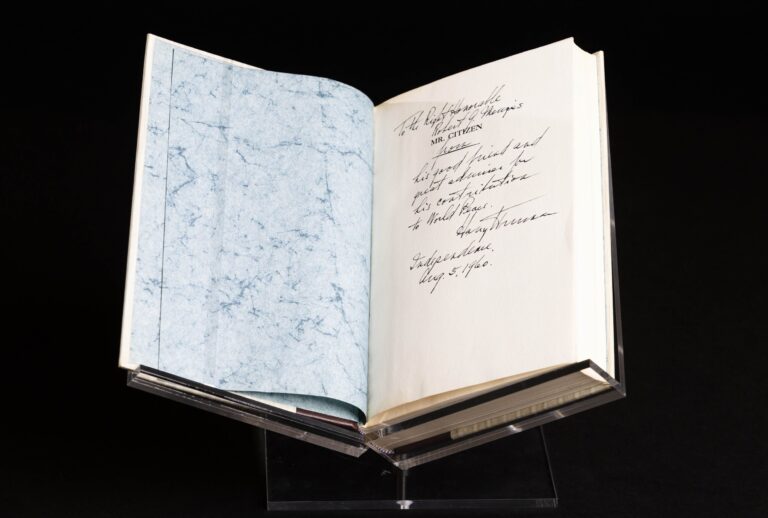 To the Right Honorable
Robert Menzies
MR. CITIZEN
from
his good friend and
great admirer for
his contribution
to World Peace.
Harry Truman
Independence,
Aug. 5, 1960.